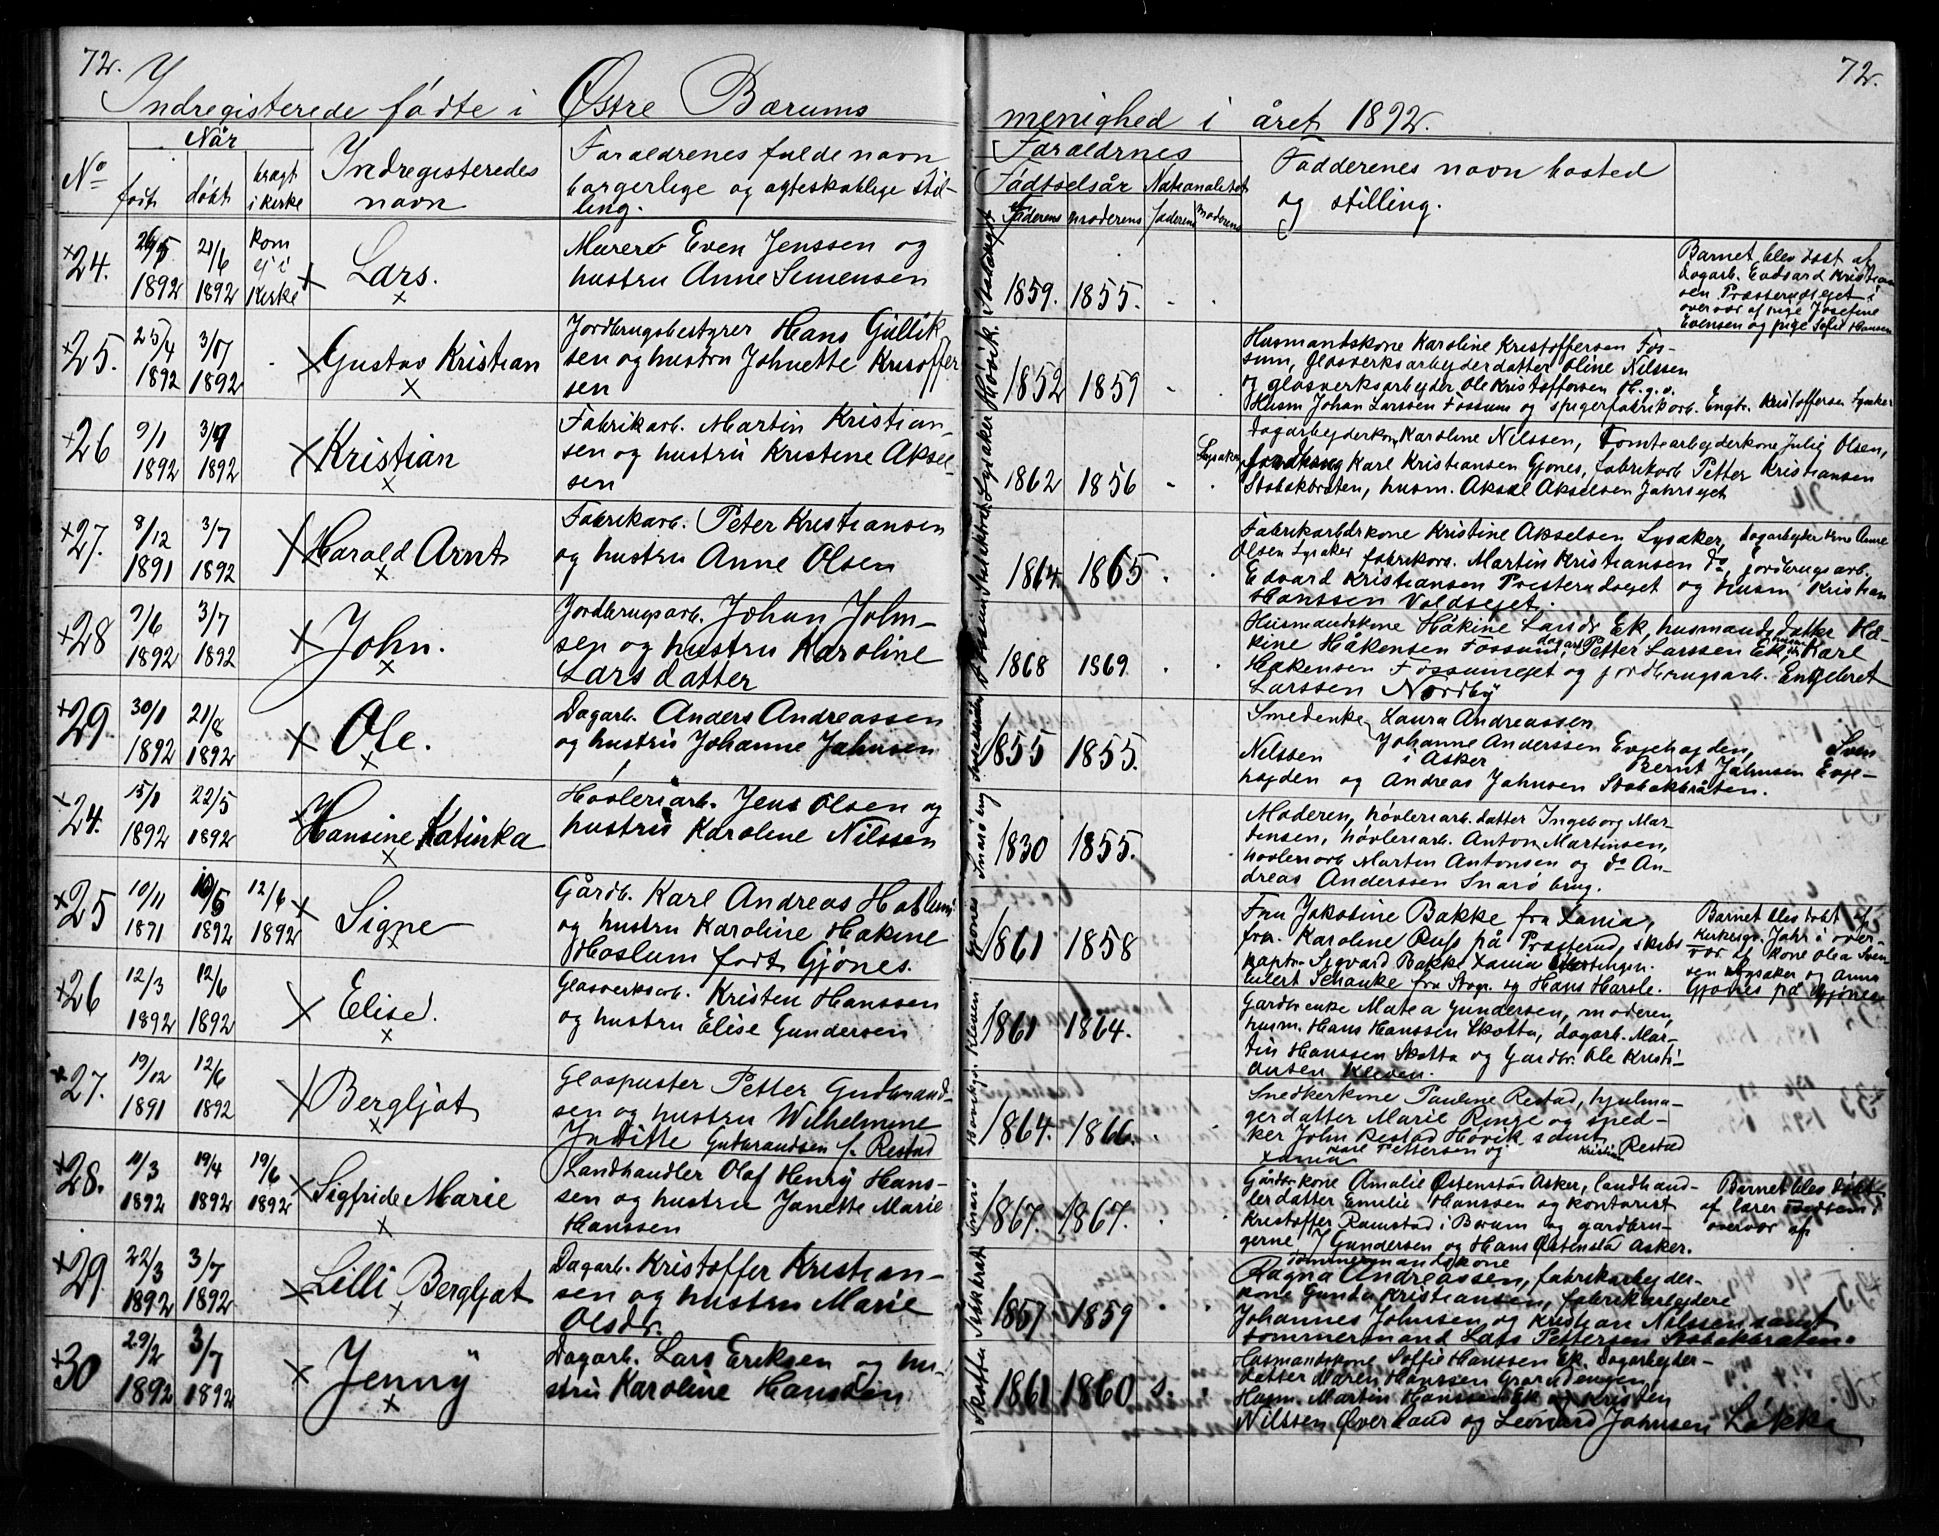 72.
72.
Indregisterede fødte i Østre Bærums
menighed i året 1892.
No
Når
født
døbt
bragt i kirke
Indregisteredes navn
Forældrenes fulde navn
borgerlige og ægteskablige stil-
ling.
Forældrnes
Fødselsår
Nationalitet
faderens
moderens
faderens
moderens
Fadderenes navn bosted
og stilling.
24.
26/5 1892
21/6 1892
kom ej i kirke
Lars.
Murer Even Jenssen og
hustru Anne Simensen
1859.
1855.
Barnet blev døbt af
dagarb. Edvard Kristian
sen Præsterudejet i
overvær af pige Josefine
Evensen og pige Sofie Hansen
25.
25/4 1892
3/7 1892
Gustav Kristian
Jordbrugsbestyrer Hans Gullik
sen og hustru Johnette Kristoffer
sen
1852
1859
Husmandskone Karoline Kristoffersen Fos-
sum, glasverksarbejderdatter Oline Nilssen
og glasverksarbejder Ole Kristoffersen H.g.v.
Husm Johan Larssen Fossum og spigerfabrikarb. Engbr. Kristoffersen Lysaker
26
9/1 1892
3/7 1892
Kristian
Fabrikarb. Martin Kristian-
sen og hustru Kristine Aksel-
sen
1862
1856
Dagarbejderkone Karoline Nilssen, Tomtearbejderkone Julie Olsen,
Lysaker Karl Kristiansen Gjønes, fabrikarb Petter Kristiansen
Stabækbråten, husm. Aksel Akselsen Jahrsejet
27.
8/12 1891
3/7 1892
Harald Arnt
Fabrikarb. Peter Kristiansen
og hustru Anne Olsen
1864.
1865
Fabrikarbdrkone Kristine Akselsen Lysaker, dagarbejderkone Anne
Olsen Lysaker fabrikarb. Martin Kristiansen do, jordbrugsarb.
Edvard Kristiansen Presterudejet og husm Kristian
Hanssen Voldsejet.
28
9/6 1892
3/7 1892
John.
Jordbrugsarb. Johan John-
sen og hustru Karoline
Larsdatter
1868
1869
Husmandskone Håkine Larsdr Ek, husmandsdatter Hå-
kine Håkensen Fossum, dagarb Petter Larssen Ek, husm Karl
Håkensen Fossumejet og jordbrugsarb. Engebret
Larssen Nordby
29.
30/1 1892
21/8 1892
Ole.
Dagarb. Anders Andreassen
og hustru Johanne Jahnsen
1855
1855.
Smedenke Laura Andreassen
Johanne Anderssen Evjehøjden, Sven
Nilssen i Asker Bernt Jahnsen Evje-
højden og Andreas Jahnsen Stabækbråten.
24.
15/1 1892
22/5 1892
Hansine Katinka
Høvleriarb. Jens Olsen og
hustru Karoline Nilssen
1830
1855.
Moderen, høvleriarb. datter Ingeborg Mar-
tinsen, høvleriarb. Anton Martinsen,
høvleriarb Martin Antonsen og do An-
dreas Anderssen Snarø brug.
25
10/11 1871
10/5 1892
12/6 1892
Signe
Gårdb. Karl Andreas Haslum
og hustru Karoline Hakine
Haslum født Gjønes.
1861
1858
Fru Jakobine Bakke fra Xania,
frk. Karoline Russ på Præsterud, skibs-
kaptn Sigvard Bakke Xania
Schanke fra og Hans Harsle.
Barnet blev døbt af
Kirkesgr. Jahr i over-
vær af kone Olia Sven
sen Lysaker og Anna
Gjønes på Gjønes
26
12/3 1892
12/6 1892
Elise.
Glasverksarb. Kristen Hanssen
og hustru Elise Gundersen
1861
1864.
Gårdbrenke Matea Gundersen, moderen,
husm. Hans Hanssen Skotta, dagarb. Mar-
tin Hanssen Skotta og Gårdbr. Ole Kristi-
ansen Kleven.
27.
19/12 1891
12/6 1892
Bergljot
Glaspuster Petter Gudbrand-
sen og hustru Wilhelmine
Inditte Gudbrandsen f. Restad
1864.
1866.
Snedkerkone Pauline Restad, hjulma-
gerdatter Marie Ringe og sned-
ker John Restad Høvik samt
Xania Karl Pettersen og Kristian Restad
28.
11/3 1892
19/4 1892
19/6 1892
Sigfride Marie
Landhandler Olaf Henry Hans-
sen og hustru Janette Marie
Hanssen
1867.
1867.
Gårdbrkone Amalie Østenstad Asker, landhand-
lerdatter Emilie Hanssen og kontorist
Kristoffer Ramstad i Bærum og gårdbru-
gerne J Gundersen og Hans Østenstad Asker.
Barnet blev døbt
af lærer i
overvær af
29.
22/3 1892
3/7 1892
Lilli Bergljot
Dagarb. Kristoffer Kristian-
sen og hustru Marie
Olsdr.
1867.
1859
Tømmermandskone
Ragna Andreassen, fabrikarbejder-
kone Gunda Kristiansen, fabrikarbejdere
Johannes Johnsen og Kristian Nilssen samt
tømmermand Lars Pettersen Stabækbråten.
30
29/2 1892
3/7 1892
Jenny
Dagarb. Lars Eriksen og hu-
stru Karoline Hanssen
1861
1860
Husmandskone Soffie Hanssen Ek. Dagarbejder-
datter Maren Hanssen Grandengen,
Husm. Martin Hanssen Ek og Kristen
Nilssen Øverland og Leonard Jahnsen Løkke